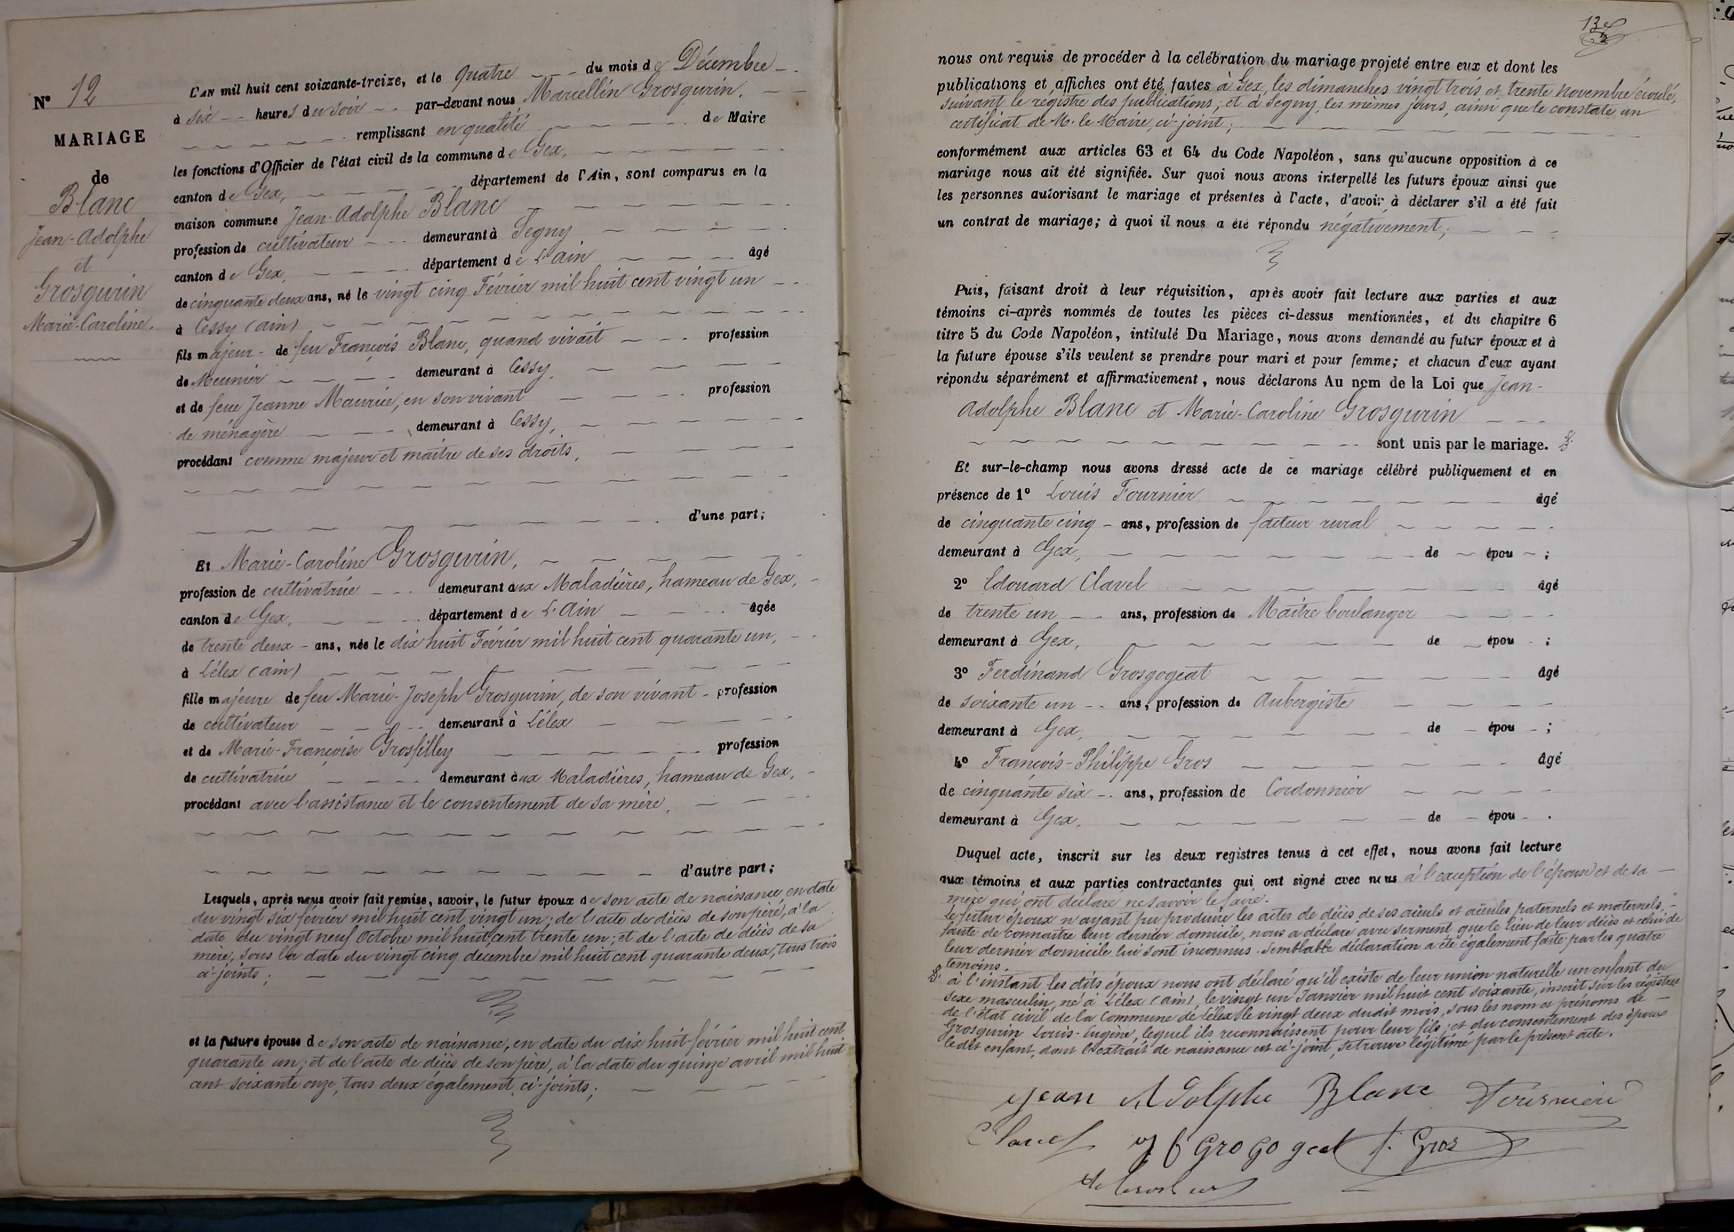 N° 12
MARIAGE
de
Blanc
Jean-Adolphe
et
Grosgurin
Marie-Caroline.
L'AN mil huit cent soixante-treize, et le quatre du mois de Décembre
à six heures du soir par-devant nous Marcellin Grosgurin,
remplissant en qualité de Maire
les fonctions d'Officier de l'état civil de la commune de Gex,
canton de Gex, département de l'Ain, sont comparus en la
maison commune Jean-Adolphe Blanc
profession de cultivateur demeurant à Segny
canton de Gex, département de L'ain âgé
de cinquante deux ans, né le vingt cinq Février mil huit cent vingt un
à Cessy (ain)
fils majeur de feu François Blanc, quand vivait profession
de Meunier demeurant à Cessy,
et de feue Jeanne Maurier, en son vivant profession
de ménagère demeurant à Cessy,
procédant comme majeur et maître de ses droits,
d'une part;
Et Marie-Caroline Grosgurin,
profession de cultivatrice demeurant aux Maladières, hameau de Gex,
canton de Gex, département de L'Ain âgée
de trente deux ans, née le dix huit Février mil huit cent quarante un,
à Lélex (ain)
fille majeure de feu Marie-Joseph Grosgurin, de son vivant profession
de cultivateur demeurant à Lélex
et de Marie-Françoise Grosfilley profession
de cultivatrice demeurant aux Maladières, hameau de Gex,
procédant avec l'assistance et le consentement de sa mère,
d'autre part;
Lesquels, après nous avoir fait remise, savoir, le futur époux de son acte de naissance, en date
du vingt six février mil huit cent vingt un; de l'acte de décès de son père, à la
date du vingt neuf Octobre mil huit cent trente un; et de l'acte de décès de sa
mère, sous la date du vingt cinq décembre mil huit cent quarante deux, tous trois
ci-joints;
et la future épouse de son acte de naissance, en date du dix huit février mil huit cent
quarante un; et de l'acte de décès de son père, à la date du quinze avril mil huit
cent soixante onze, tous deux également ci-joints;
13
nous ont requis de procéder à la célébration du mariage projeté entre eux et dont les
publications et affiches ont été faites à Gex, les dimanches vingt trois et trente novembre écoulé,
suivant le registre des publications, et à Segny, les mêmes jours, ainsi que le constate un
certificat de M. le Maire, ci-joint;
conformément aux articles 63 et 64 du Code Napoléon, sans qu'aucune opposition à ce
mariage nous ait été signifiée. Sur quoi nous avons interpellé les futurs époux ainsi que
les personnes autorisant le mariage et présentes à l'acte, d'avoir à déclarer s'il a été fait
un contrat de mariage; à quoi il nous a été répondu négativement;
Puis, faisant droit à leur réquisition, après avoir fait lecture aux parties et aux
témoins ci-après nommés de toutes les pièces ci-dessus mentionnées, et du chapitre 6
titre 5 du Code Napoléon, intitulé Du Mariage, nous avons demandé au futur époux et à
la future épouse s'ils veulent se prendre pour mari et pour femme; et chacun d'eux ayant
répondu séparément et affirmativement, nous déclarons Au nom de la Loi que Jean-
Adolphe Blanc et Marie-Caroline Grosgurin
sont unis par le mariage.
Et sur-le-champ nous avons dressé acte de ce mariage célébré publiquement et en
présence de 1° Louis Fournier âgé
de cinquante cinq ans, profession de facteur rural
demeurant à Gex, de épou ;
2° Edouard Clavel âgé
de trente un ans, profession de Maître boulanger
demeurant à Gex, de épou ;
3° Ferdinand Grosgogeat âgé
de soixante un ans, profession de Aubergiste
demeurant à Gex, de épou ;
4° François-Philippe Gros âgé
de cinquante six ans, profession de Cordonnier
demeurant à Gex, de épou .
Duquel acte, inscrit sur les deux registres tenus à cet effet, nous avons fait lecture
aux témoins et aux parties contractantes qui ont signé avec nous à l'exception de l'épouse et de sa
mère qui ont déclaré ne savoir le faire.
le futur époux n'ayant pu produire les actes de décès de ses aïeuls et aïeules paternels et maternels,
faute de connaître leur dernier domicile, nous a déclaré avec serment que le lieu de leur décès et celui de
leur dernier domicile lui sont inconnus. Semblable déclaration a été également faite par les quatre
témoins.
à l'instant les dits époux nous ont déclaré qu'il existe de leur union naturelle un enfant du
sexe masculin, né à Lélex (ain), le vingt un Janvier mil huit cent soixante, inscrit sur les registres
de l'état civil de la Commune de Lélex le vingt deux dudit mois, sous les nom et prénoms de
Grosgurin Louis-Eugène, lequel ils reconnaissent pour leur fils; et du consentement des époux
ledit enfant, dont l'extrait de naissance est ci-joint, se trouve légitimé par le présent acte.
jean Adolphe Blanc Fournier
Clavel GroGogeat f. Gros